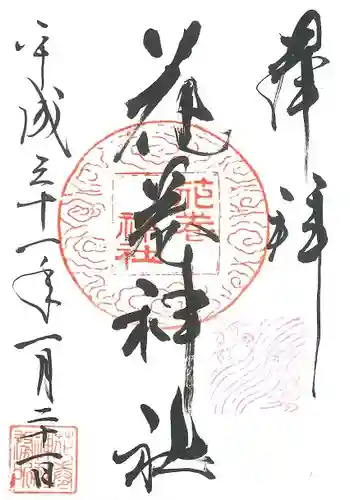 奉拝
花巻神社
平成三十一年一月二十一日
花巻
神社